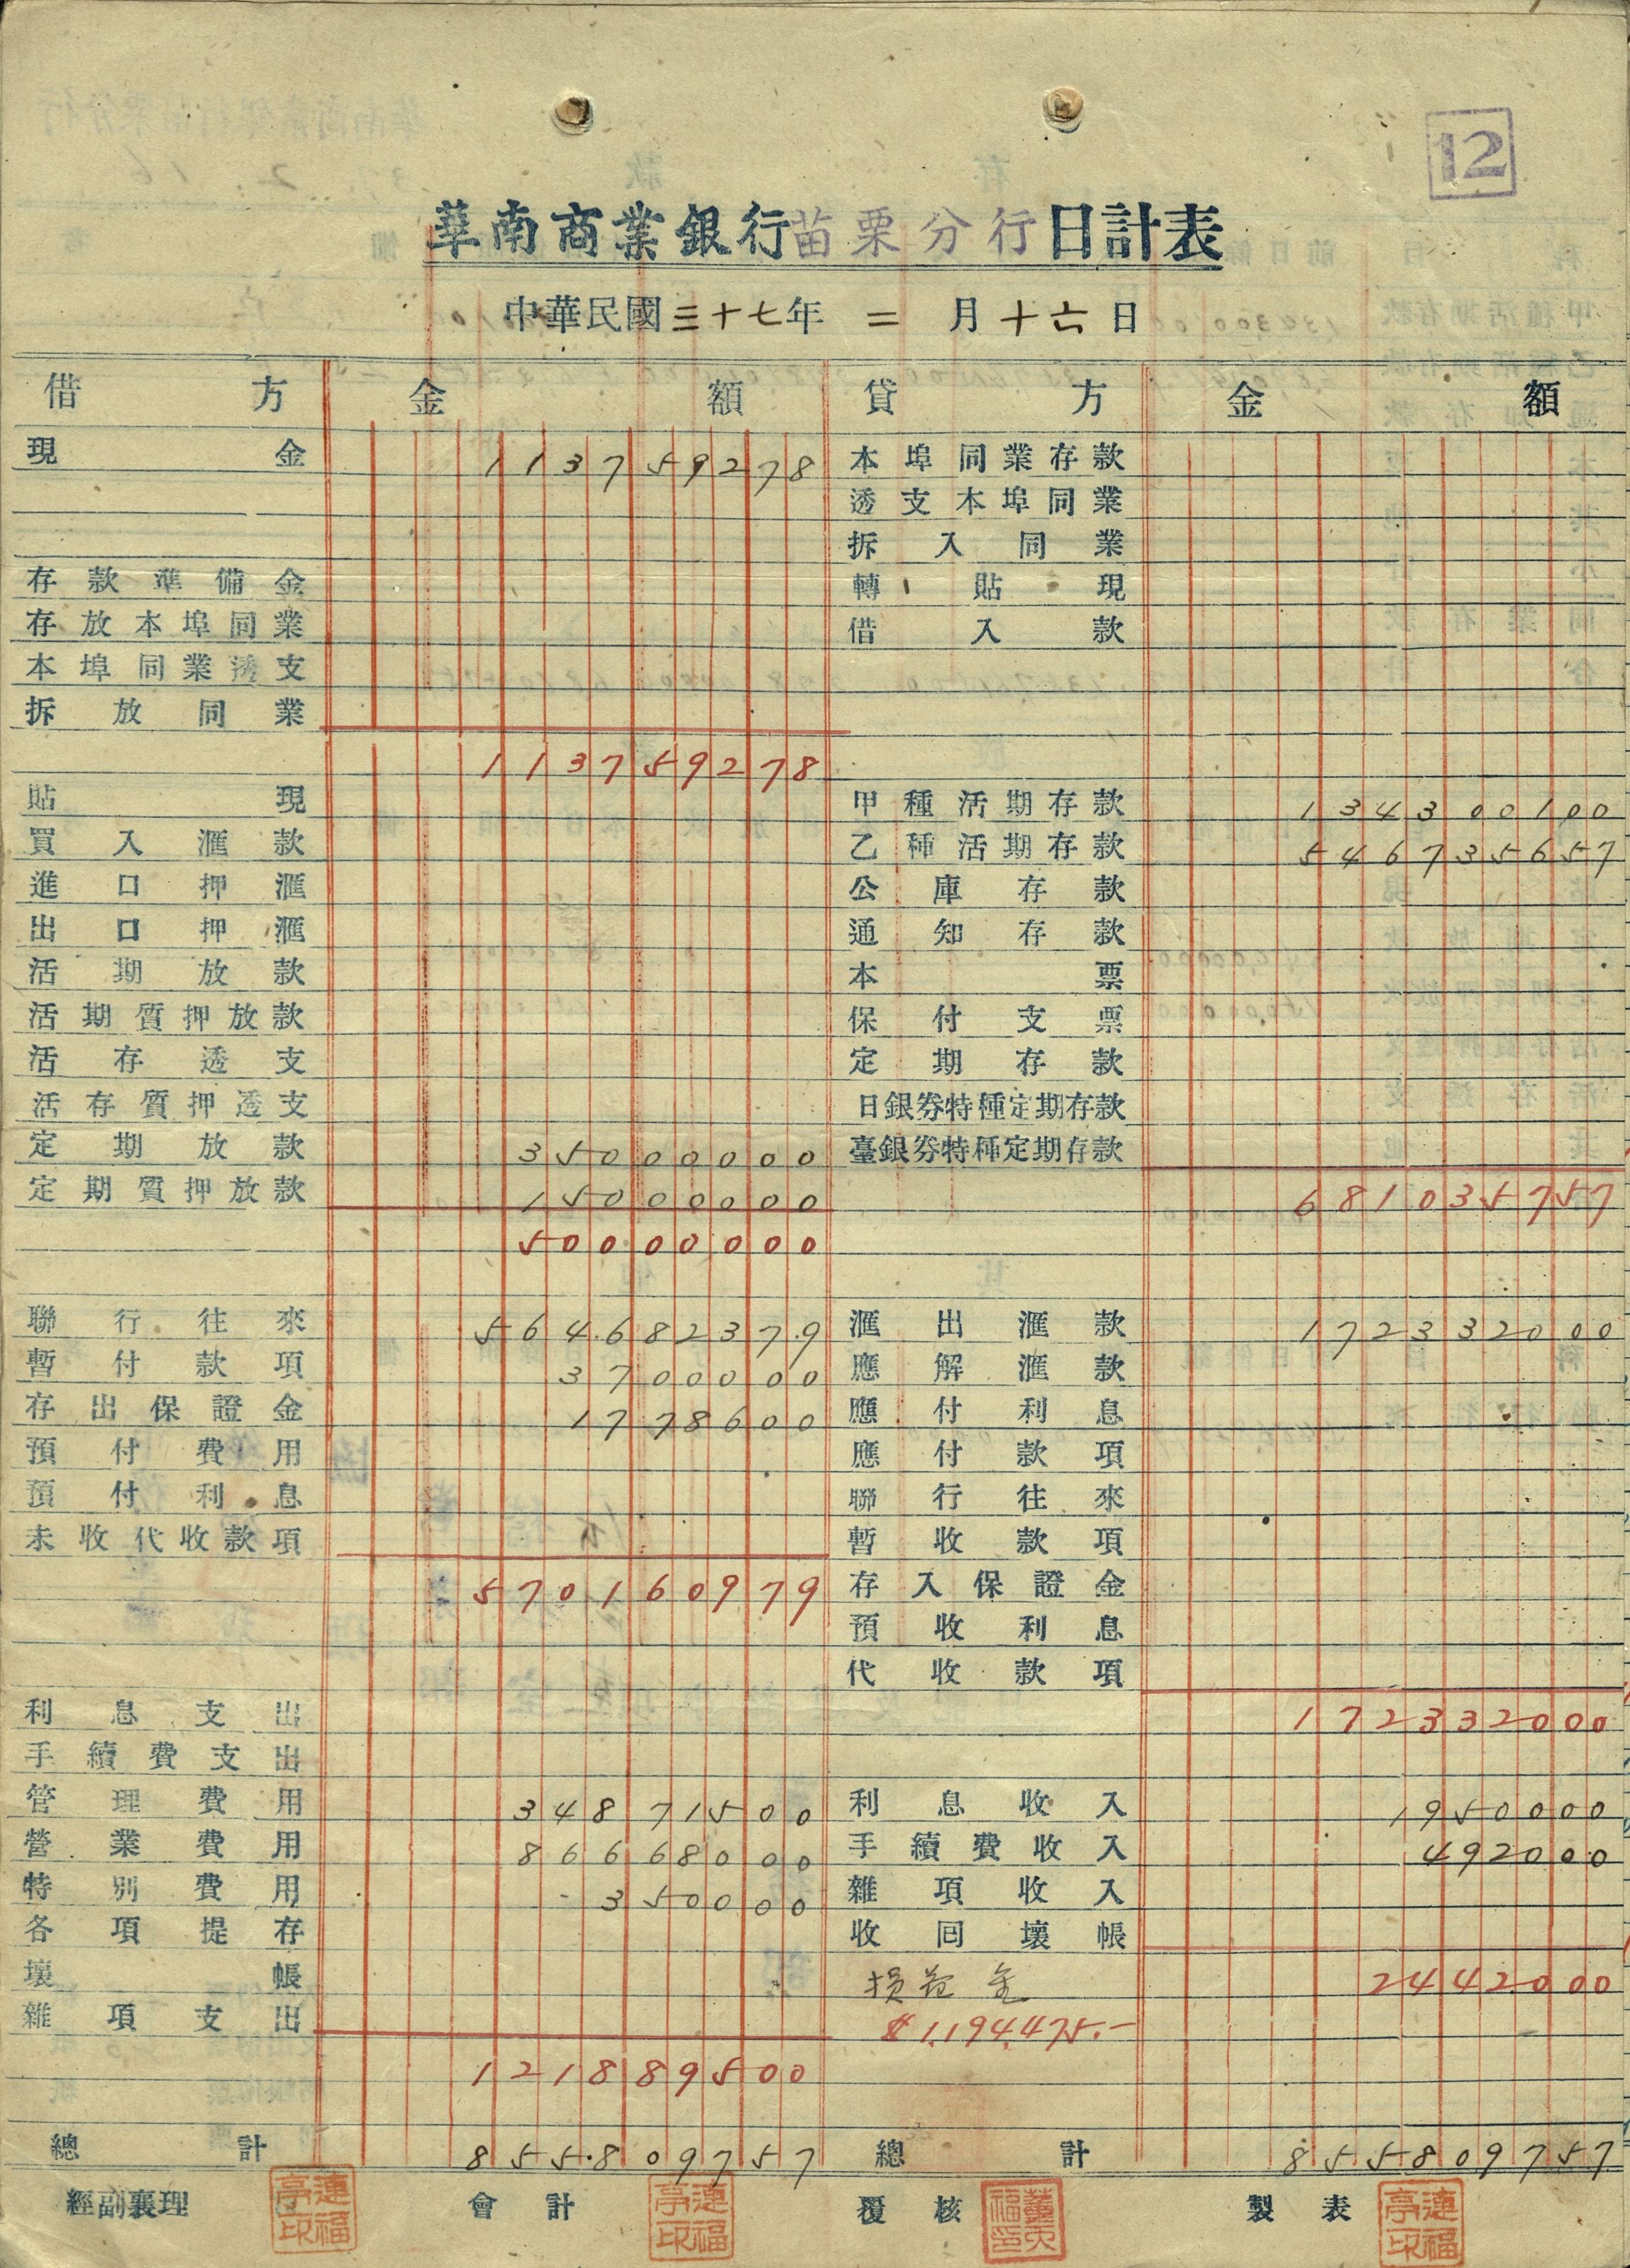 12
華南商業銀行苗栗分行日計表
中華民國三十七年二月十六日
借方 金額
現金 113759278
存款準備金
存放本埠同業
本埠同業透支
拆放同業
113759278
貼現
買入滙款
進口押滙
出口押滙
活期放款
活期質押放款
活存透支
活存質押透支
定期放款 35000000
定期質押放款 15000000
50000000
聯行往來 564682379
暫付款項 3700000
存出保證金 1778600
預付費用
預付利息
未收代收款項
570160979
利息支出
手續費支出
管理費用 34871500
營業費用 86668000
特別費用 350000
各項提存
壞帳
雜項支出
121889500
總計 855809757
貸方 金額
本埠同業存款
透支本埠同業
拆入同業
轉貼現
借入款
甲種活期存款 134300100
乙種活期存款 546735657
公庫存款
通知存款
本票
保付支票
定期存款
日銀券特種定期存款
臺銀券特種定期存款
681035757
滙出滙款 172332000
應解滙款
應付利息
應付款項
聯行往來
暫收款項
存入保證金
預收利息
代收款項
172332000
利息收入 1950000
手續費收入 492000
雜項收入
收回壞帳
損益金 2442000
$1,194,475.-
總計 855809757
經副襄理 連福亭印 會計 連福亭印 覆核 製表 連福亭印